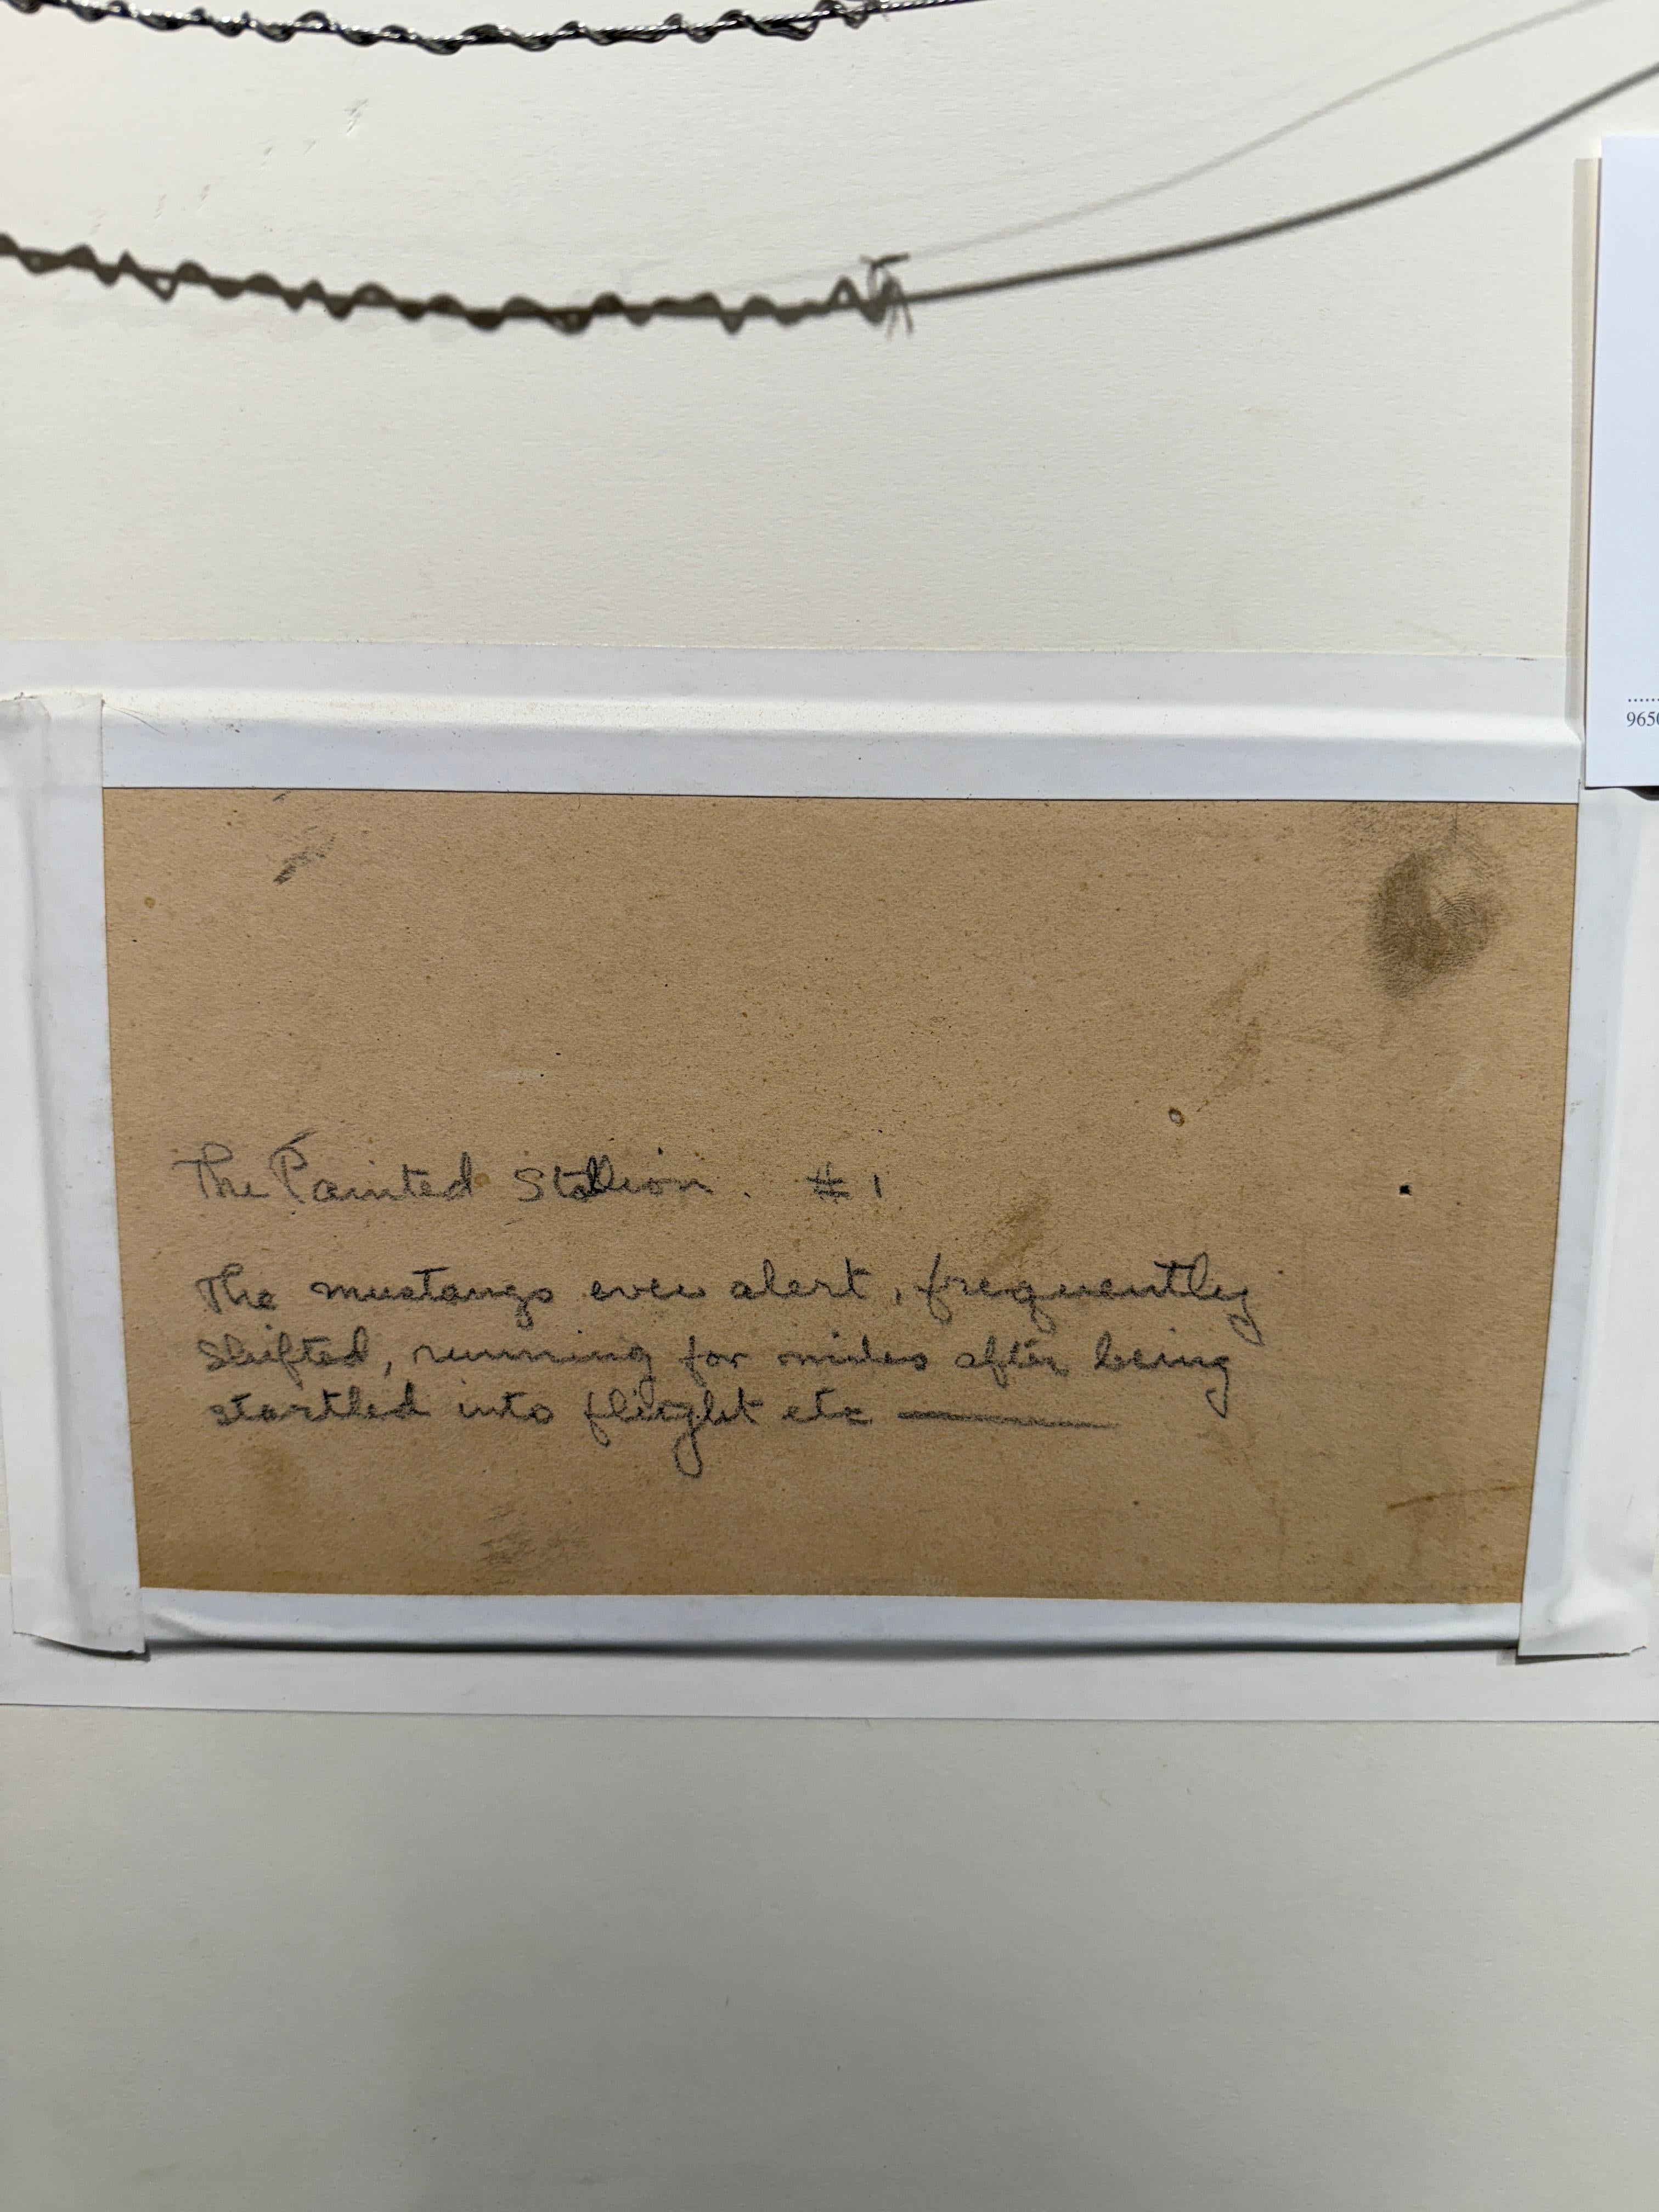 965
The Painted Stallion. #1
The mustangs ever alert, frequently
shifted, running for miles after being
startled into flight etc ———